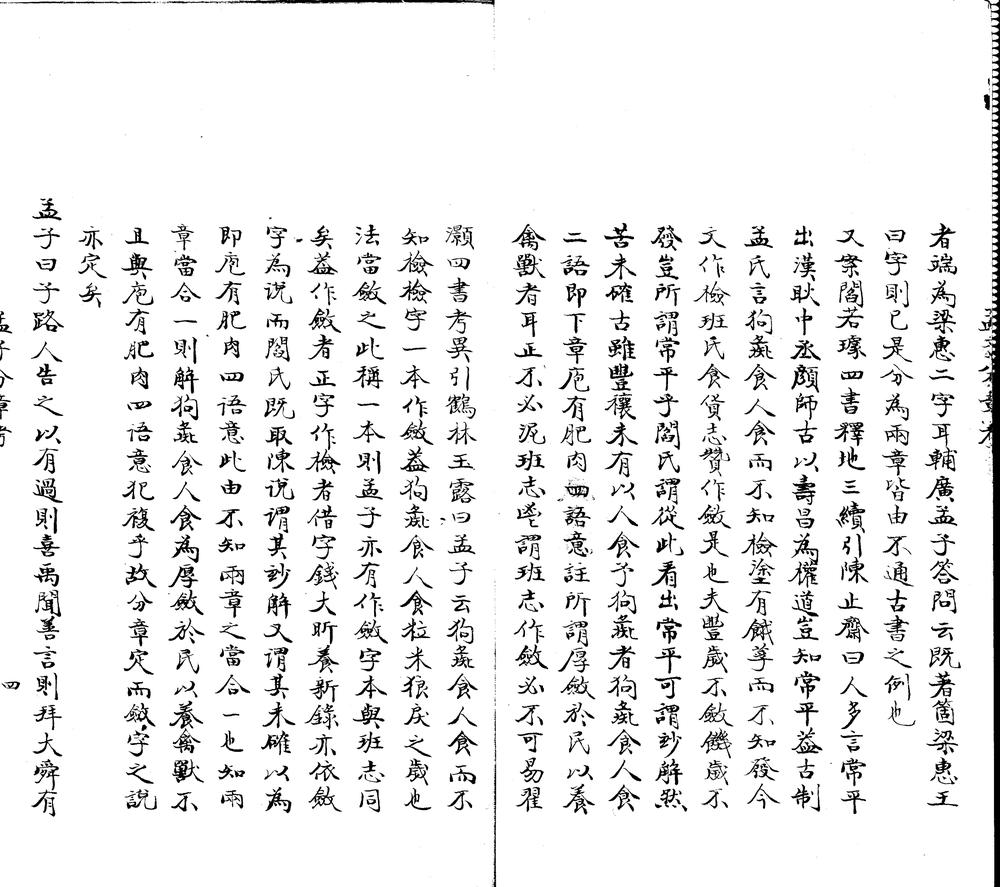 者端為梁惠二字耳輔廣孟子答問云既著箇梁惠王
曰字則已是分為兩章皆由不通古書之例也
又案閻若璩四書釋地三續引陳止齋曰人多言常平
出漢耿中丞顔師古以壽昌為權道豈知常平蓋古制
孟氏言狗彘食人食而不知檢塗有餓莩而不知發今
文作檢班氏食貨志贊作斂是也夫豐歲不斂饑歲不
發豈所謂常平乎閻氏謂從此看出常平可謂妙解然
苦未確古雖豐穰未有以人食予狗彘者狗彘食人食
二語即下章庖有肥肉四語意註所謂厚斂於民以養
禽獸者耳正不必泥班志燮謂班志作斂必不可易翟
灝四書考異引鶴林玉露曰孟子云狗彘食人食而不
知檢檢字一本作斂蓋狗彘食人食粒米狼戾之歲也
法當斂之此稱一本則孟子亦有作斂字本與班志同
矣蓋作斂者正字作檢者借字錢大昕養新錄亦依斂
字為說而閻氏既取陳說謂其妙解又謂其未確以為
即庖有肥肉四语意此由不知兩章之當合一也知兩
章當合一則解狗彘食人食為厚斂於民以養禽獸不
且與庖有肥肉四语意犯複乎故分章定而斂字之說
亦定矣
孟子曰子路人告之以有過則喜禹聞善言則拜大舜有
孟子分章考
四